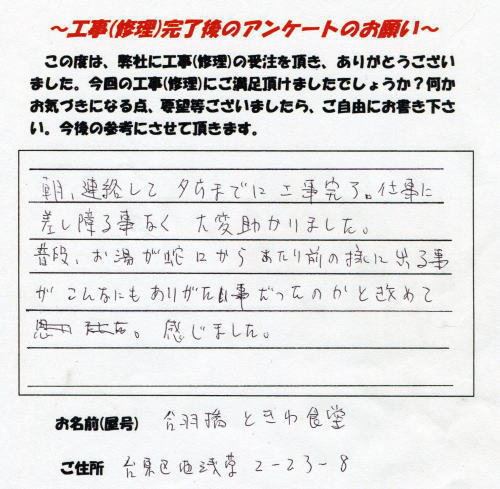 ～工事(修理)完了後のアンケートのお願い～
この度は、弊社に工事(修理)の受注を頂き、ありがとうござい
ました。今回の工事(修理)にご満足頂けましたでしょうか？何か
お気づきになる点、要望等ございましたら、ご自由にお書き下さ
い。今後の参考にさせて頂きます。
朝、連絡して夕方までに工事完了。仕事に
差し障る事なく 大変助かりました。
普段、お湯が蛇口から あたり前の様に出る事
が こんなにも ありがたい事だったのかと改めて
感じました。
お名前(屋号) 合羽橋 ときわ食堂
ご住所 台東区西浅草 2-23-8